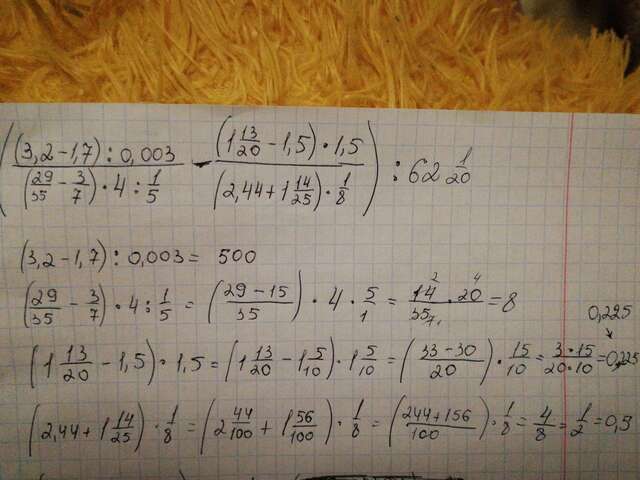 (((3,2-1,7):0,003)/((29/35-3/7)·4:1/5) - ((1 13/20-1,5)·1,5)/((2,44+1 14/25)·1/8)):62 1/20
(3,2-1,7):0,003= 500
(29/35-3/7)·4:1/5=((29-15)/35)·4·5/1=(14²·20⁴)/35₇₁=8
0,225
(1 13/20-1,5)·1,5=(1 13/20-1 5/10)·1 5/10=((33-30)/20)·15/10=(3·15)/(20·10)=0,225
(2,44+1 14/25)·1/8=(2 44/100+1 56/100)·1/8=((244+156)/100)·1/8=4/8=1/2=0,5